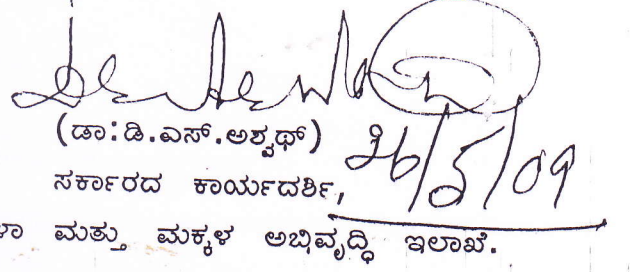 (ಡಾ:ಡಿ.ಎಸ್.ಅಶ್ವಥ್)
26/5/09
ಸರ್ಕಾರದ ಕಾರ್ಯದರ್ಶಿ,
ಮತ್ತು ಮಕ್ಕಳ ಅಭಿವೃದ್ಧಿ ಇಲಾಖೆ.